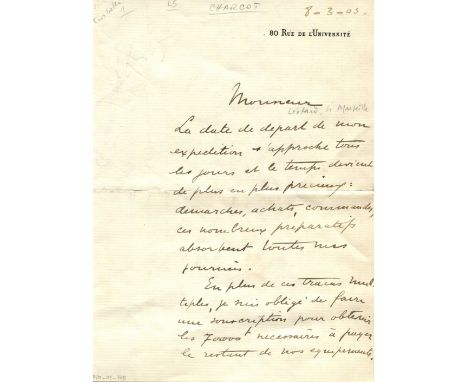 LS
CHARCOT
8-3-03.
80 RUE DE L'UNIVERSITÉ
Monsieur
à Marseille
La date de départ de mon
expédition s'approche tous
les jours et le temps devient
de plus en plus précieux :
démarches, achats, commandes,
ces nombreux préparatifs
absorbent toutes mes
journées.
En plus de ces tracas mul
tiples, je suis obligé de faire
une souscription pour obtenir
les 70000 f nécessaires à payer
le restant de nos équipements,